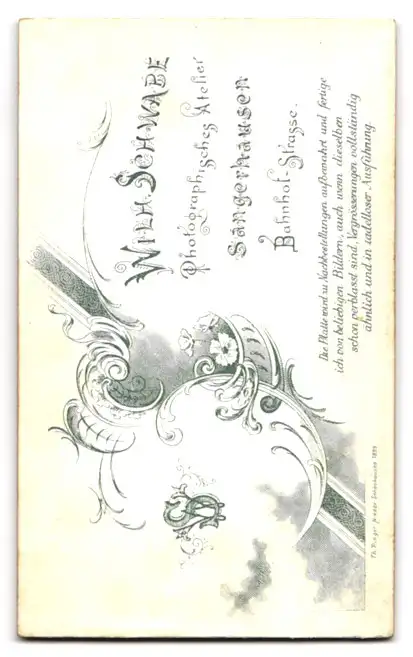 WILH. SCHWABE
Photographisches Atelier
Sangerhausen
Bahnhof-Strasse.
Die Platte wird zu Nachbestellungen aufbewahrt und fertige
ich von beliebigen Bildern, auch wenn dieselben
schon verblasst sind, Vergrösserungen vollständig
ähnlich und in tadelloser Ausführung.